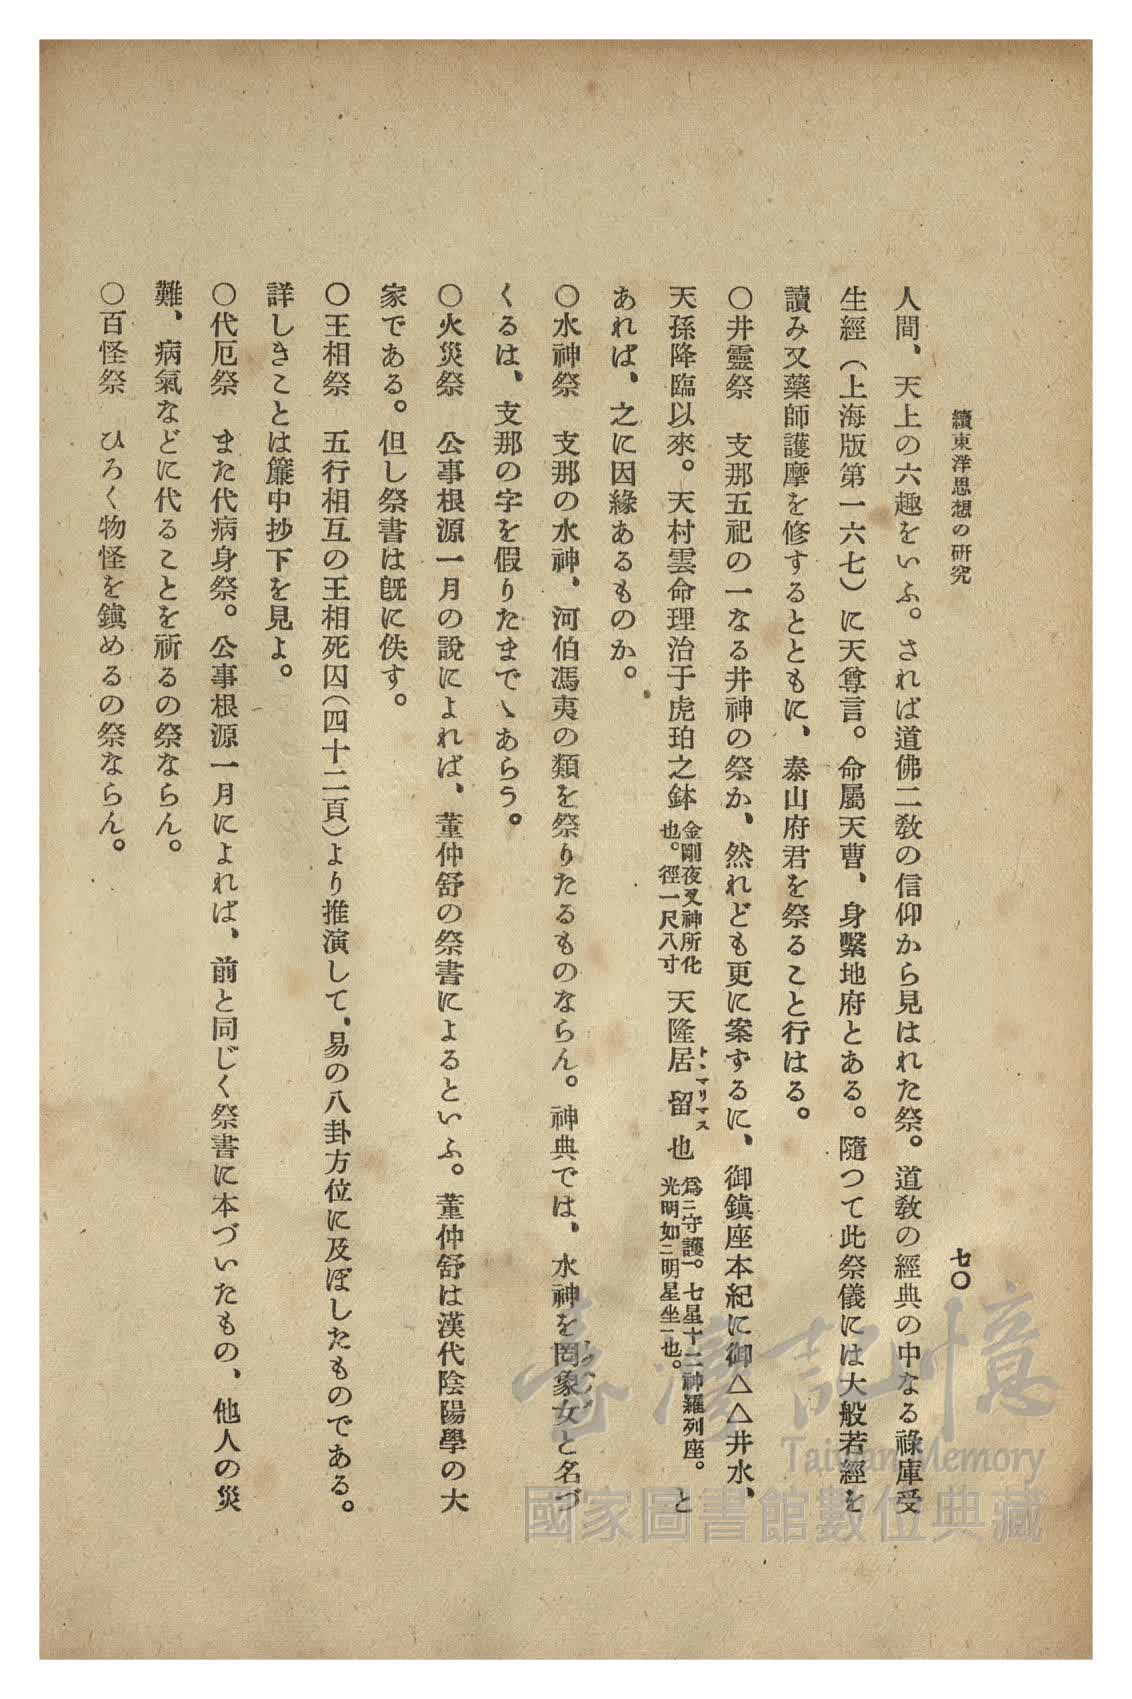 續東洋思想の研究
七〇
人間、天上の六趣をいふ。されば道佛二敎の信仰から見はれた祭。道敎の經典の中なる祿庫受
生經（上海版第一六七）に天尊言。命屬天曹、身繫地府とある。隨つて此祭儀には大般若經を
讀み又藥師護摩を修するとともに、泰山府君を祭ること行はる。
〇井靈祭　支那五祀の一なる井神の祭か、然れども更に案ずるに、御鎭座本紀に御△△井水、
天孫降臨以來。天村雲命理治于虎珀之鉢金剛夜叉神所化也。徑一尺八寸天隆居留也爲ニ守護一。七星十二神羅列座。光明如ニ明星坐一也。と
トヽマリマス
あれば、之に因緣あるものか。
〇水神祭　支那の水神、河伯馮夷の類を祭りたるものならん。神典では、水神を罔象女と名づ
くるは、支那の字を假りたまでゝあらう。
〇火災祭　公事根源一月の說によれば、董仲舒の祭書によるといふ。董仲舒は漢代陰陽學の大
家である。但し祭書は旣に佚す。
〇王相祭　五行相互の王相死囚（四十二頁）より推演して、易の八卦方位に及ぼしたものである。
詳しきことは簾中抄下を見よ。
〇代厄祭　また代病身祭。公事根源一月によれば、前と同じく祭書に本づいたもの、他人の災
難、病氣などに代ることを祈るの祭ならん。
〇百怪祭　ひろく物怪を鎭めるの祭ならん。
臺灣記憶
Taiwan Memory
國家圖書館數位典藏